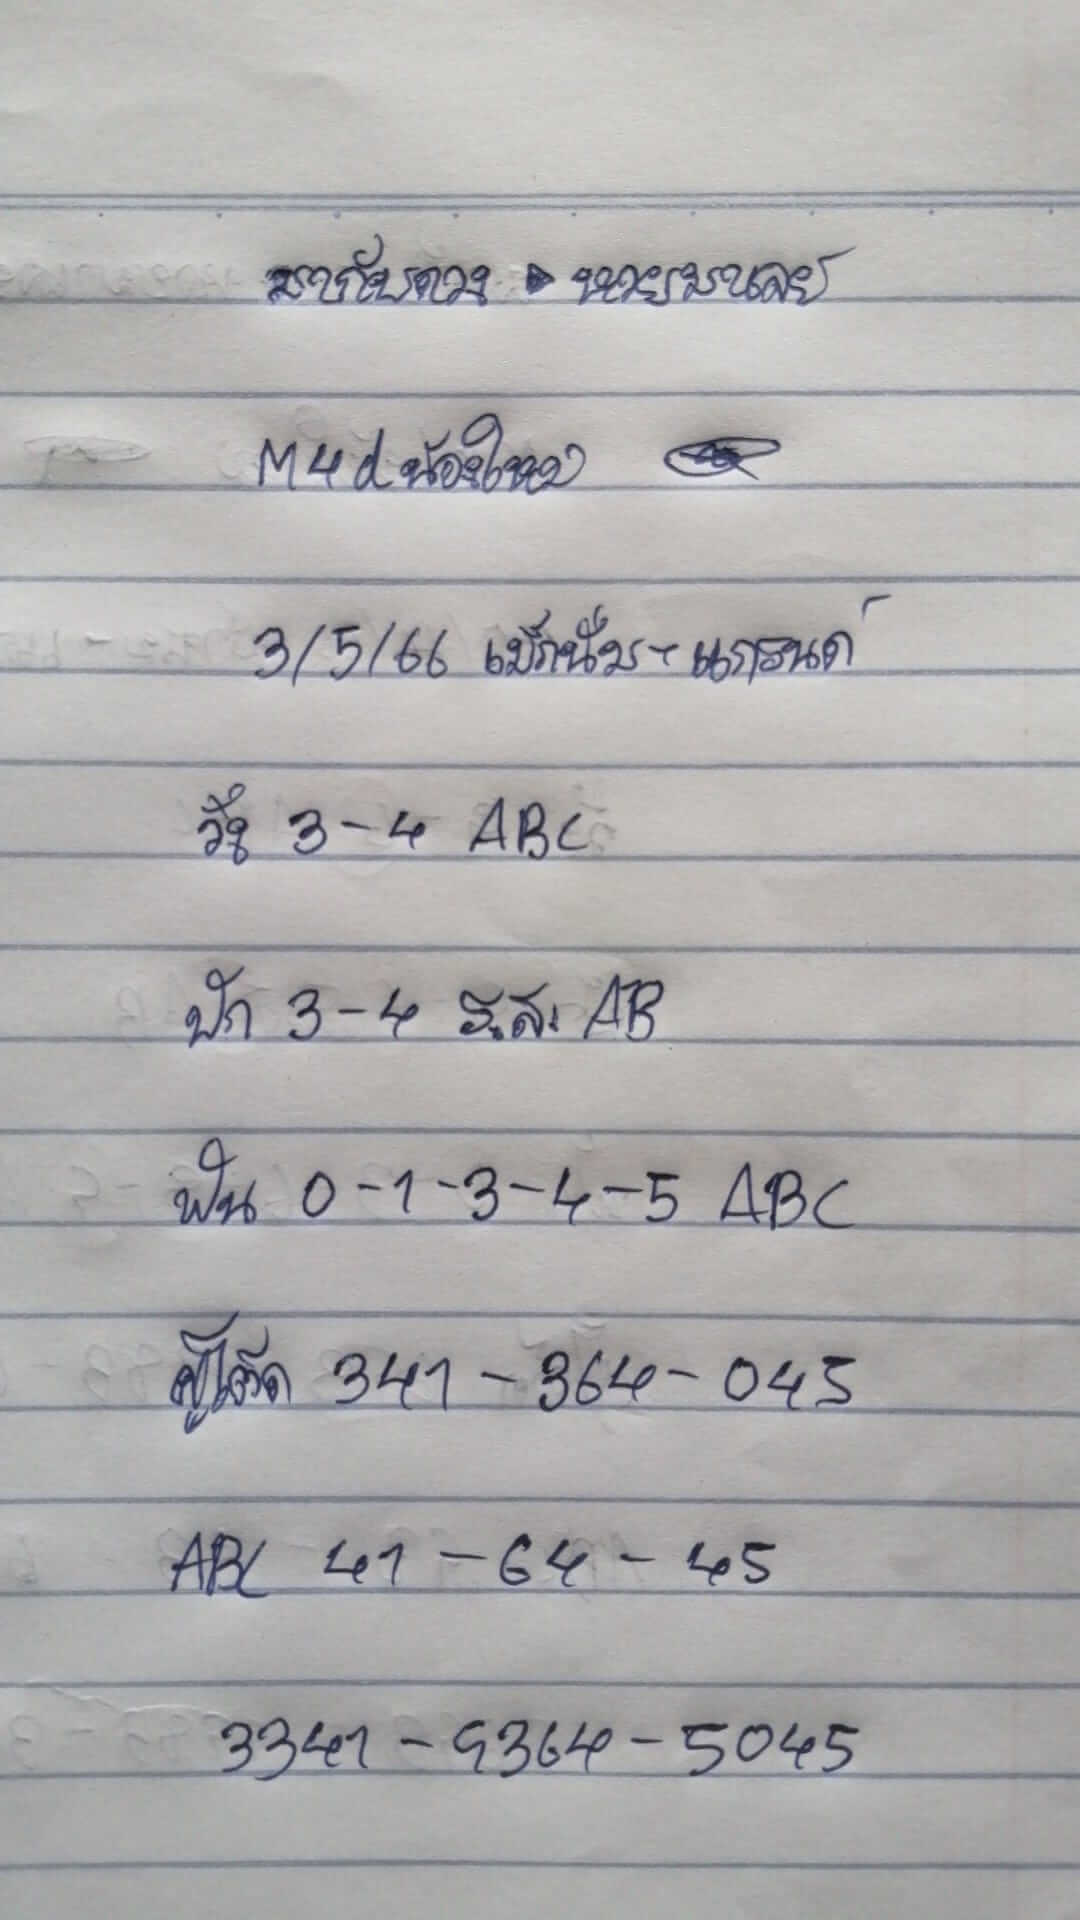 มากับดวง นายมาเลย์
M4d น้องใหม่
3/5/66 แม็กนั่ม - แกรนด์
วิ่ง 3-4 ABC
ปัก 3-4 ร.ส. AB
ฟัน 0-1-3-4-5 ABC
ชุดโต๊ด 341-364-045
ABC 41-64-45
3341-9364-5045